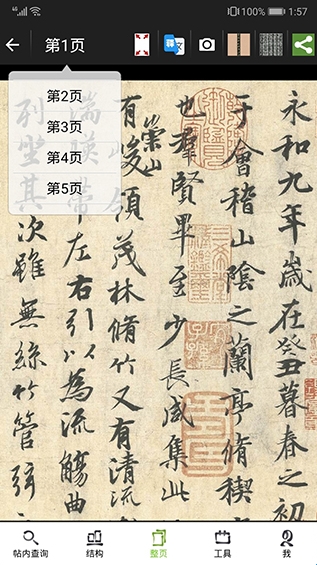 4G 100% 1:57
第1页
第2页
第3页
第4页
第5页
永和九年歲在癸丑暮春之
于會稽山陰之蘭亭脩稧
也羣賢畢至少長咸集此
有崇山峻領茂林脩竹又有清流
湍暎帶左右引以為流觴曲
列坐其次雖無絲竹管弦
帖内查询
结构
整页
工具
我